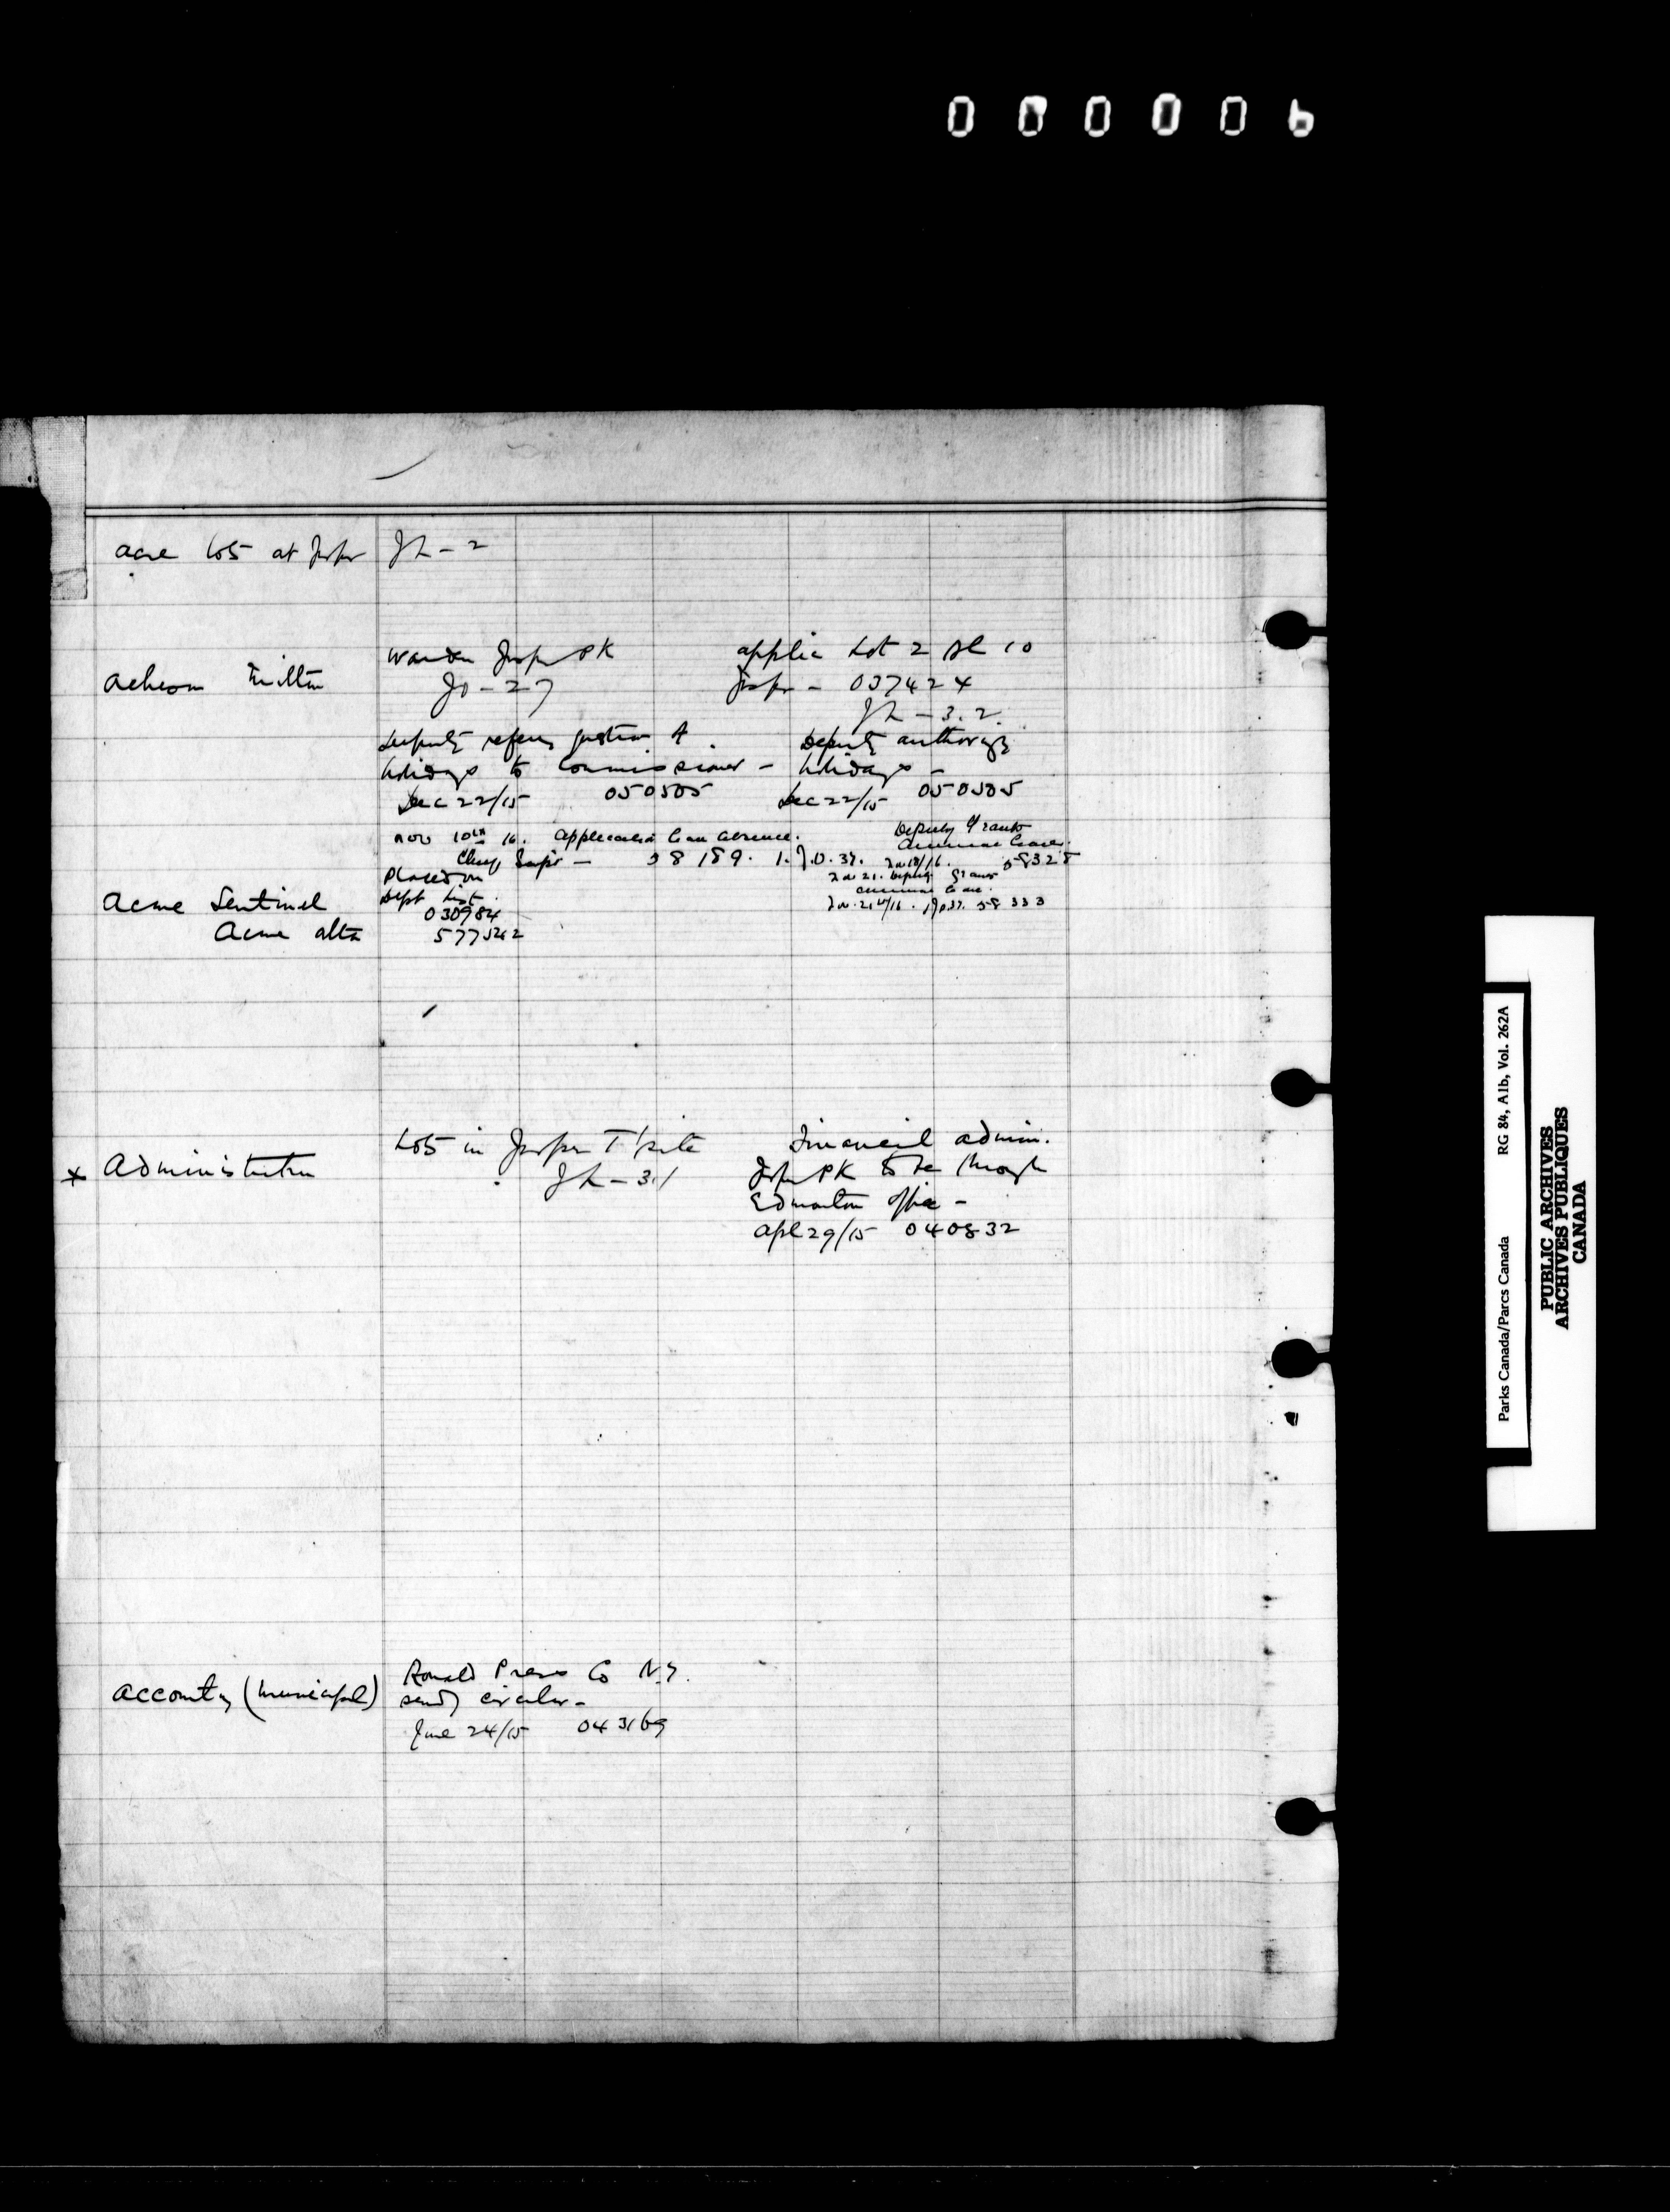 000006
acre lots at Jasper JL-2
Acheson Milton
Warden Jasper PK
JO-27
applic Lot 2 Bl 10
Jasper - 037424
JL-3.2.
Deputy refers question of
holidays to Commissioner -
Dec 22/15 050505
Deputy authorizes
holidays -
Dec 22/15 050505
Nov 10th 16. Application leave absence.
58189. J.O. 37.
Deputy Grants
annual leave.
58328
Nov 21. Deputy Grants
annual leave.
Nov. 21st/16. JO37. 58333
Acme Sentinel
Acme Alta
Placed on
Dept List.
030984
577522
x Administration
Lots in Jasper T'site
JL-31
Financial admin.
Jasper PK to be through
Edmonton office -
Apl 29/15 040832
Accounting (Municipal)
Ronald Press Co N.Y.
sendg circular -
June 24/15 043169
Parks Canada/Parcs Canada RG 84, A1b, Vol. 262A
PUBLIC ARCHIVES
ARCHIVES PUBLIQUES
CANADA